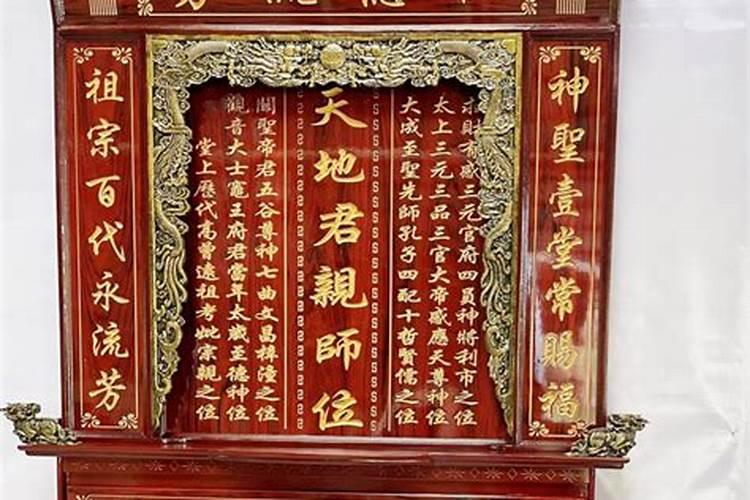 神聖壹堂常賜福
求財有感三元官府四員神將利市之位
太上三元三品三官大帝感應天尊神位
大成至聖先師孔子四配十哲賢儒之位
天地君親師位
關聖帝君五谷尊神七曲文昌梓潼之位
觀音大士竈王府君當年太歲至德神位
堂上歷代高曾遠祖考妣宗親之位
祖宗百代永流芳